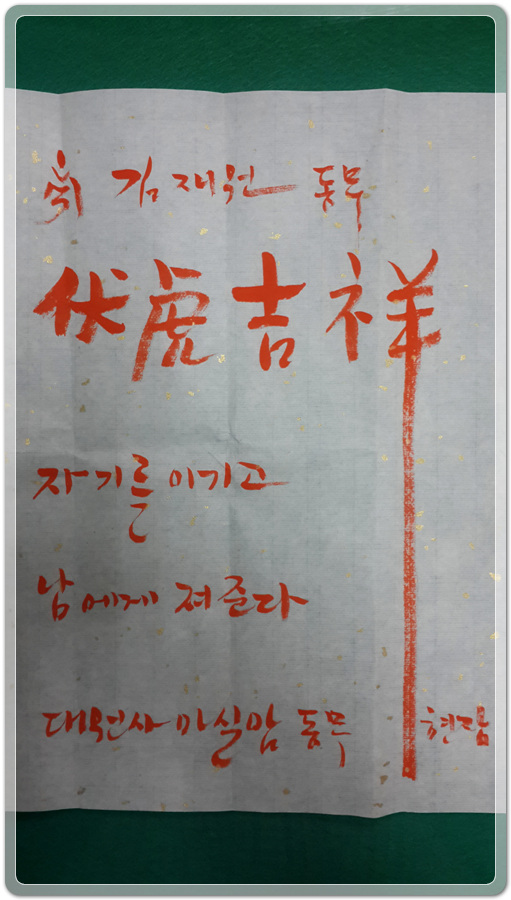 김재원 동무
伏虎吉祥
자기를 이기고
남에게 져준다
대원사 마실암 동무 현담